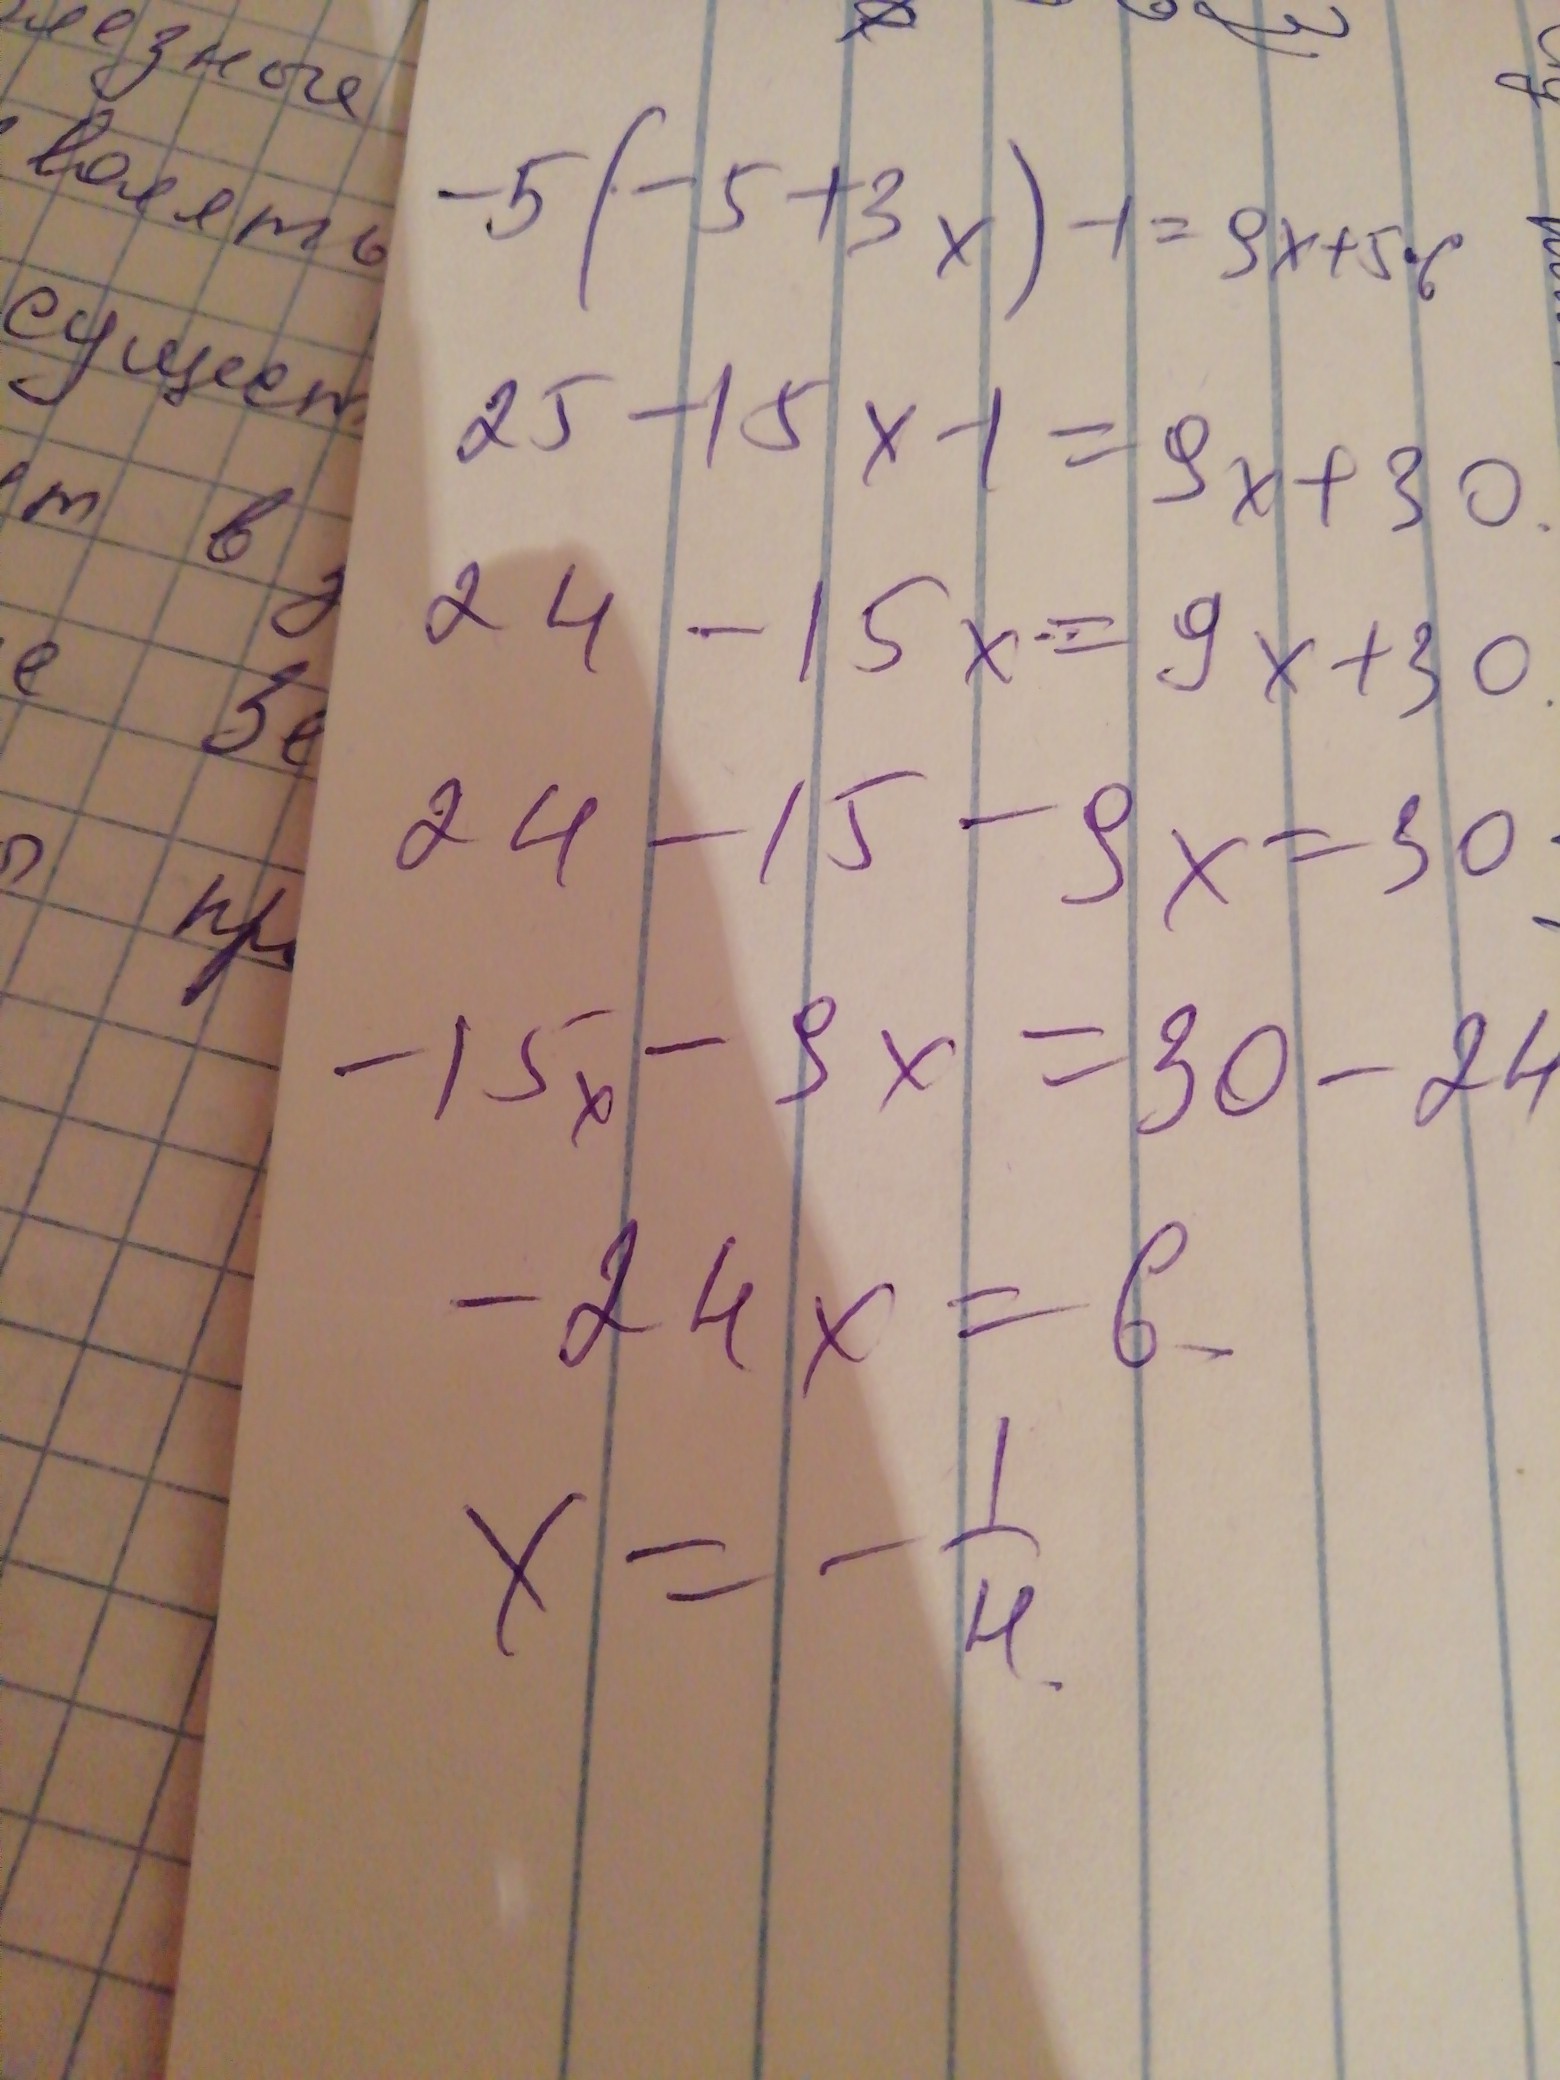 лезные
волять
сущест
ет в з
е Зе
пр
-5(-5+3x)-1=9x+5·6
25-15x-1=9x+30.
24-15x=9x+30.
24-15-9x=30
-15x-9x=30-24
-24x=6
x=-1/4.